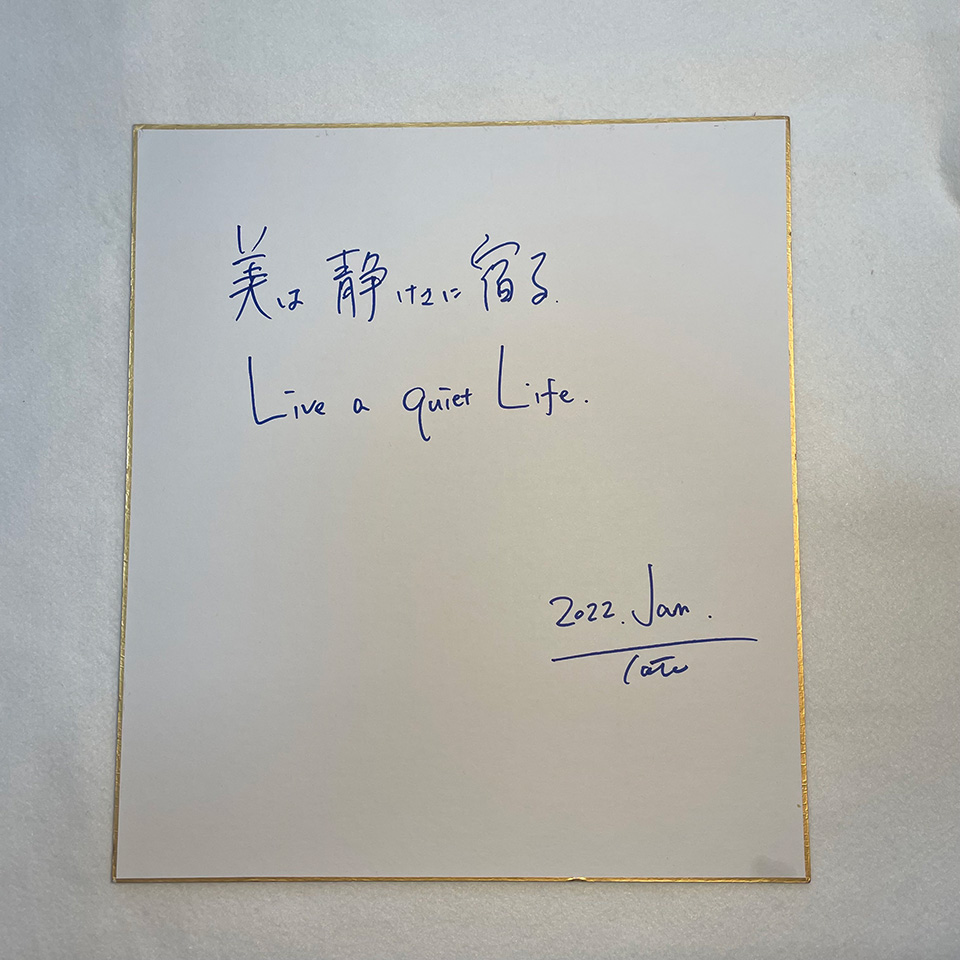 美は静けさに宿る.
Live a quiet Life.
2022. Jan.